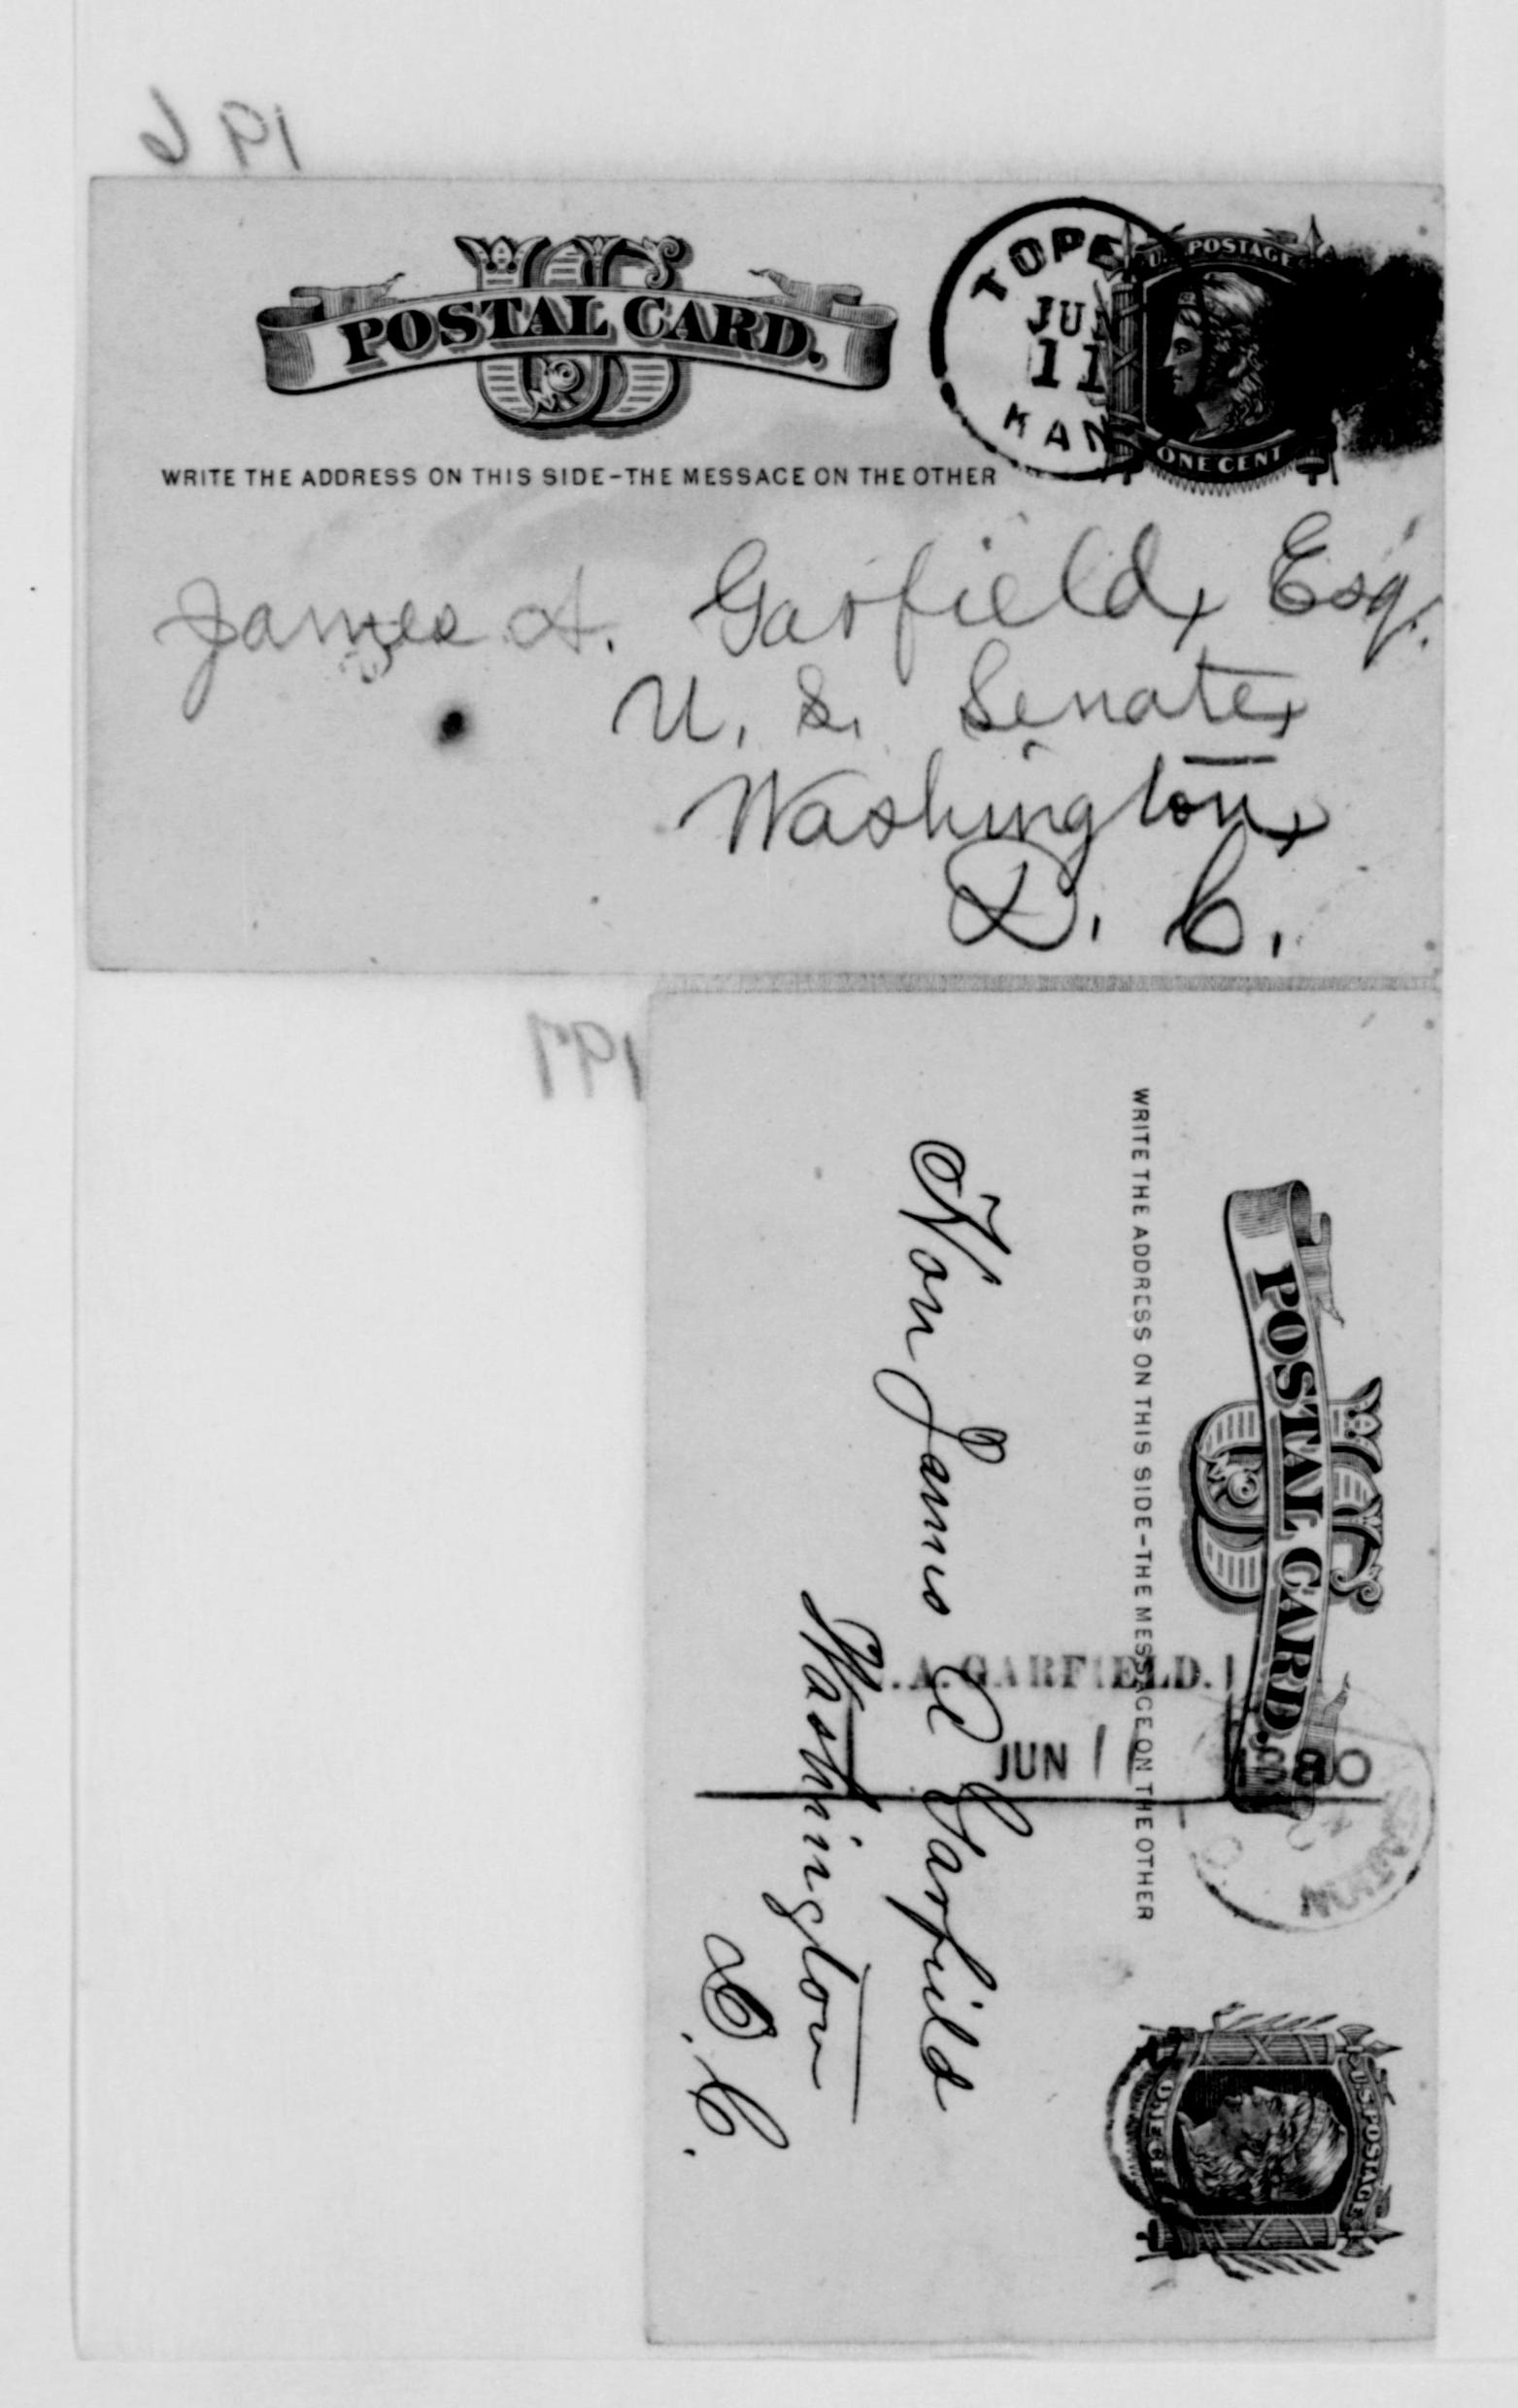 196
US
POSTAL CARD.
TOPE
JUN
11
KAN
U.S. POSTAGE
ONE CENT
WRITE THE ADDRESS ON THIS SIDE-THE MESSAGE ON THE OTHER
James A. Garfield, Esq.
U. S. Senate,
Washington,
D. C.
197
US
POSTAL CARD.
WRITE THE ADDRESS ON THIS SIDE-THE MESSAGE ON THE OTHER
.A.GARFIELD.
JUN 11 1880
U.S. POSTAGE
ONE CE
Hon James A Garfield
Washington
D. C.